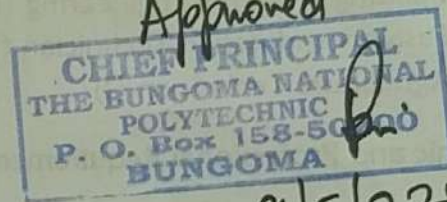 Approved
CHIEF PRINCIPAL
THE BUNGOMA NATIONAL
POLYTECHNIC
P. O. Box 158-50200
BUNGOMA